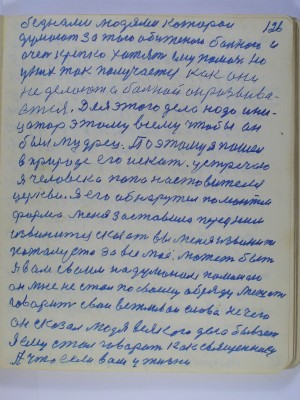 126
бедными людями которои
думают за того обиженои бального и
очет крепко хатят ему помоч но
у них так получается как они
не делают а бальной
ется. Для этого дела надо ини-
цатор этому всему чтобы он
был мудрец. Поэтому я пошел
в природе его искать. устречаю
я человека папа настоятеля
церкви. Я его
форма. меня заставило пред ним
извинится сказат вы меня извините
пожалуста за все мое. может быт
я вам своими помешал
он мне не стал по своему обряду
говарит свои вежливои слова нечего
он сказал людя всякого дела бывает
Я ему стал говарит как священнику
А что если вам у жизни